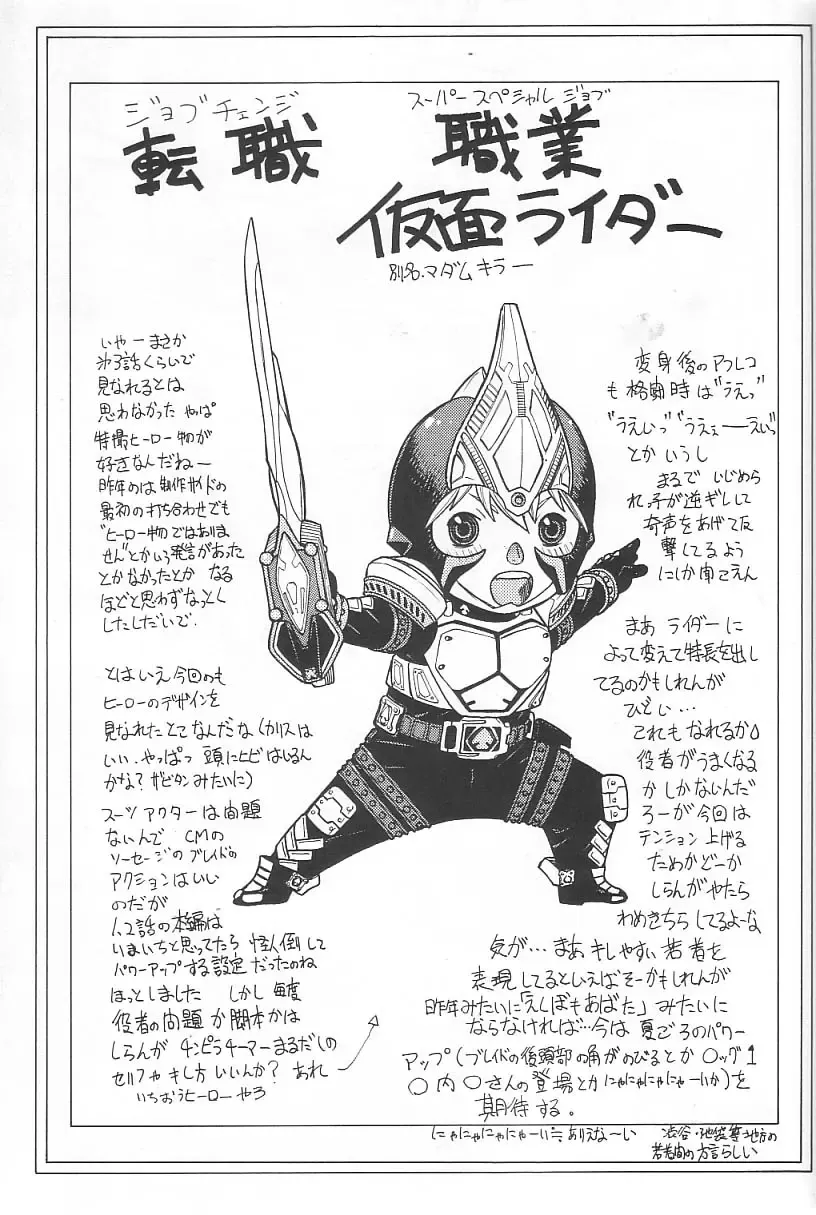 ジョブチェンジ
転職
スーパースペシャルジョブ
職業
仮面ライダー
別名.マダムキラー
いやーまさか
第3話くらいで
見なれるとは
思わなかった やっぱ
特撮ヒーロー物が
好きなんだねー
昨年のは制作サイドの
最初の打ち合わせでも
"ヒーロー物ではありま
せん"とかいう発言があった
とかなかったとか なる
ほどと思わずなっとく
したしだいで.
とはいえ今回のも
ヒーローのデザインを
見なれたとてなんだな(カリスは
いい.やっぱっ 頭にヒビはしるん
かな?ザビタンみたいに)
スーツアクターは問題
ないんで CMの
ソーセージのブレイドの
アクションはいい
のだが
1,2話の本編は
いまいちと思ってたら 怪人倒して
パワーアップする設定だったのね
ほっとしました しかし毎度
役者の問題か脚本かは
しらんが チンピラチーマーまるだしの
セリフやキレ方いいんか? あれ
いちおうヒーローやろ
変身後のアフレコ
も格闘時は"うえっ"
"うえいっ""うえぇーーえいっ"
とかいうし
まるでいじめら
れっ子が逆ギレして
奇声をあげて反
撃してるよう
にしか聞こえん
まあ ライダーに
よって変えて特長を出し
てるのかもしれんが
ひどい…
これもなれるか
役者がうまくなる
かしかないんだ
ろーが今回は
テンション上げる
ためかどーか
しらんがやたら
わめきちらしてるよーな
気が…まあキレやすい若者を
表現してるといえばそーかもしれんが
昨年みたいに「えくぼもあばた」みたいに
ならなければ…今は夏ごろのパワー
アップ(ブレイドの後頭部の角がのびるとか 〇ッグ1
〇内〇さんの登場とかにゃにゃにゃにゃーいか)を
期待する。
にゃにゃにゃにゃーい≒ありえなーい
渋谷・池袋等地方の
若者間の方言らしい